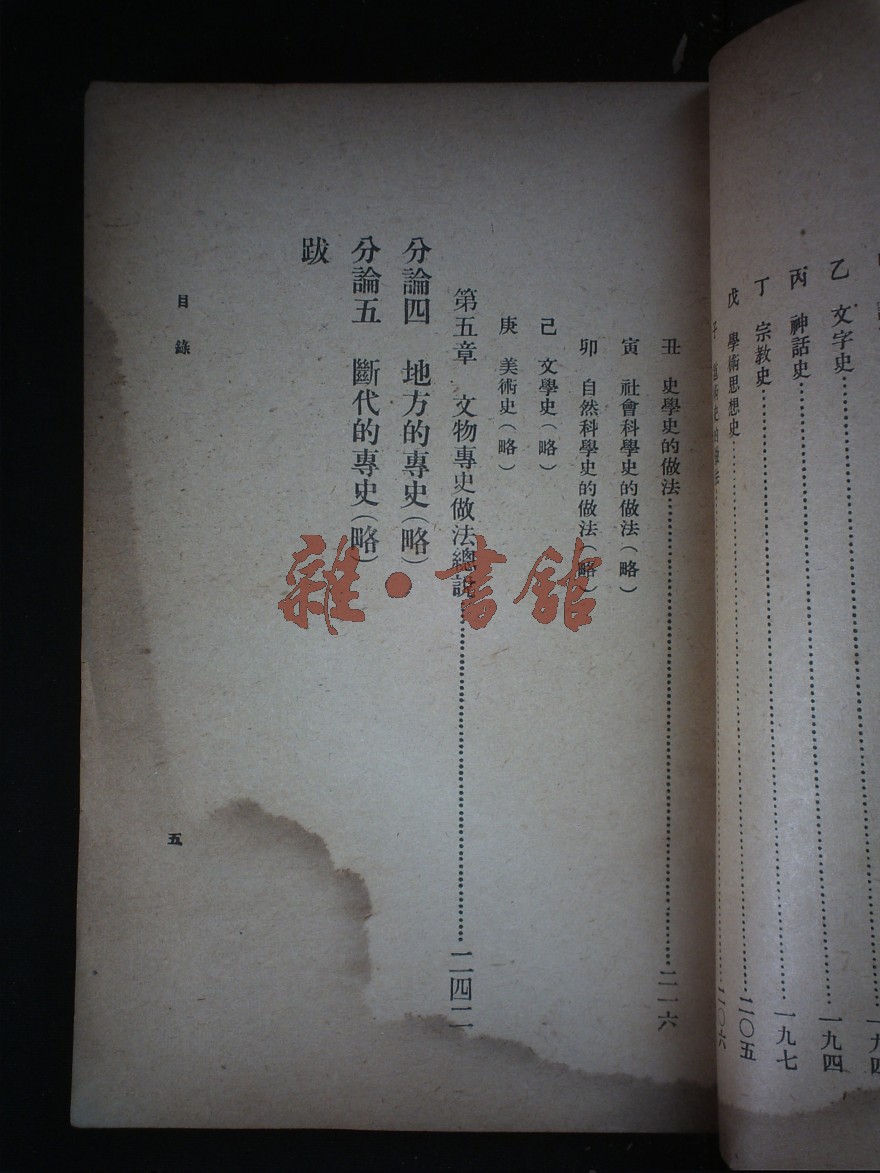 乙　文字史……………一九四
丙　神話史……………一九七
丁　宗教史……………二〇五
戊　學術思想史……………二〇六
丑　史學史的做法……………二一六
寅　社會科學史的做法（略）
卯　自然科學史的做法（略）
己　文學史（略）
庚　美術史（略）
第五章　文物專史做法總說……………二四二
分論四　地方的專史（略）
分論五　斷代的專史（略）
跋
目錄
五
雜·書館